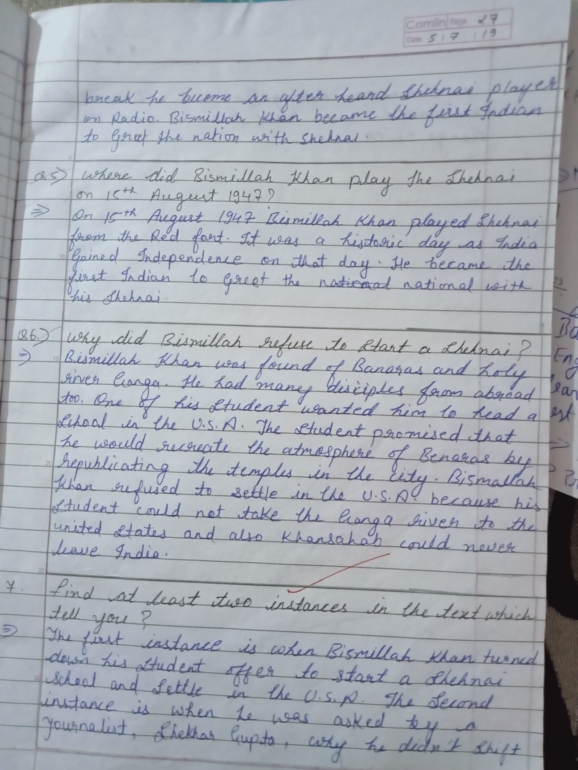 Camlin Page 27
Date 5 / 7 / 19
break he become an after heard Shehnai player
on Radio. Bismillah Khan became the first Indian
to Greet the nation with Shehnai.
Q.5) Where did Bismillah Khan play the Shehnai
on 15th August 1947?
⇒ On 15th August 1947 Bismillah Khan played Shehnai
from the Red fort. It was a historic day as India
Gained Independence on that day. He became the
first Indian to Greet the national with
his Shehnai
Q.6.) Why did Bismillah refuse to Start a Shehnai?
⇒ Bismillah Khan was found of Banaras and holy
river Ganga. He had many disciples from abroad
too. One of his Student wanted him to head a
School in the U.S.A. The Student promised that
he would recreate the atmosphere of Benaras by
republicating the temples in the city. Bismallah
Khan refused to settle in the U.S.A because his
Student could not take the Ganga river to the
united States and also Khansahab could never
leave India.
7. find at least two instances in the text which
tell you?
⇒ The first instance is when Bismillah Khan turned
down his Student offer to start a Shehnai
School and Settle in the U.S.A. The Second
instance is when he was asked by a
Journalist, Shekhar Gupta, why he didn't Shift